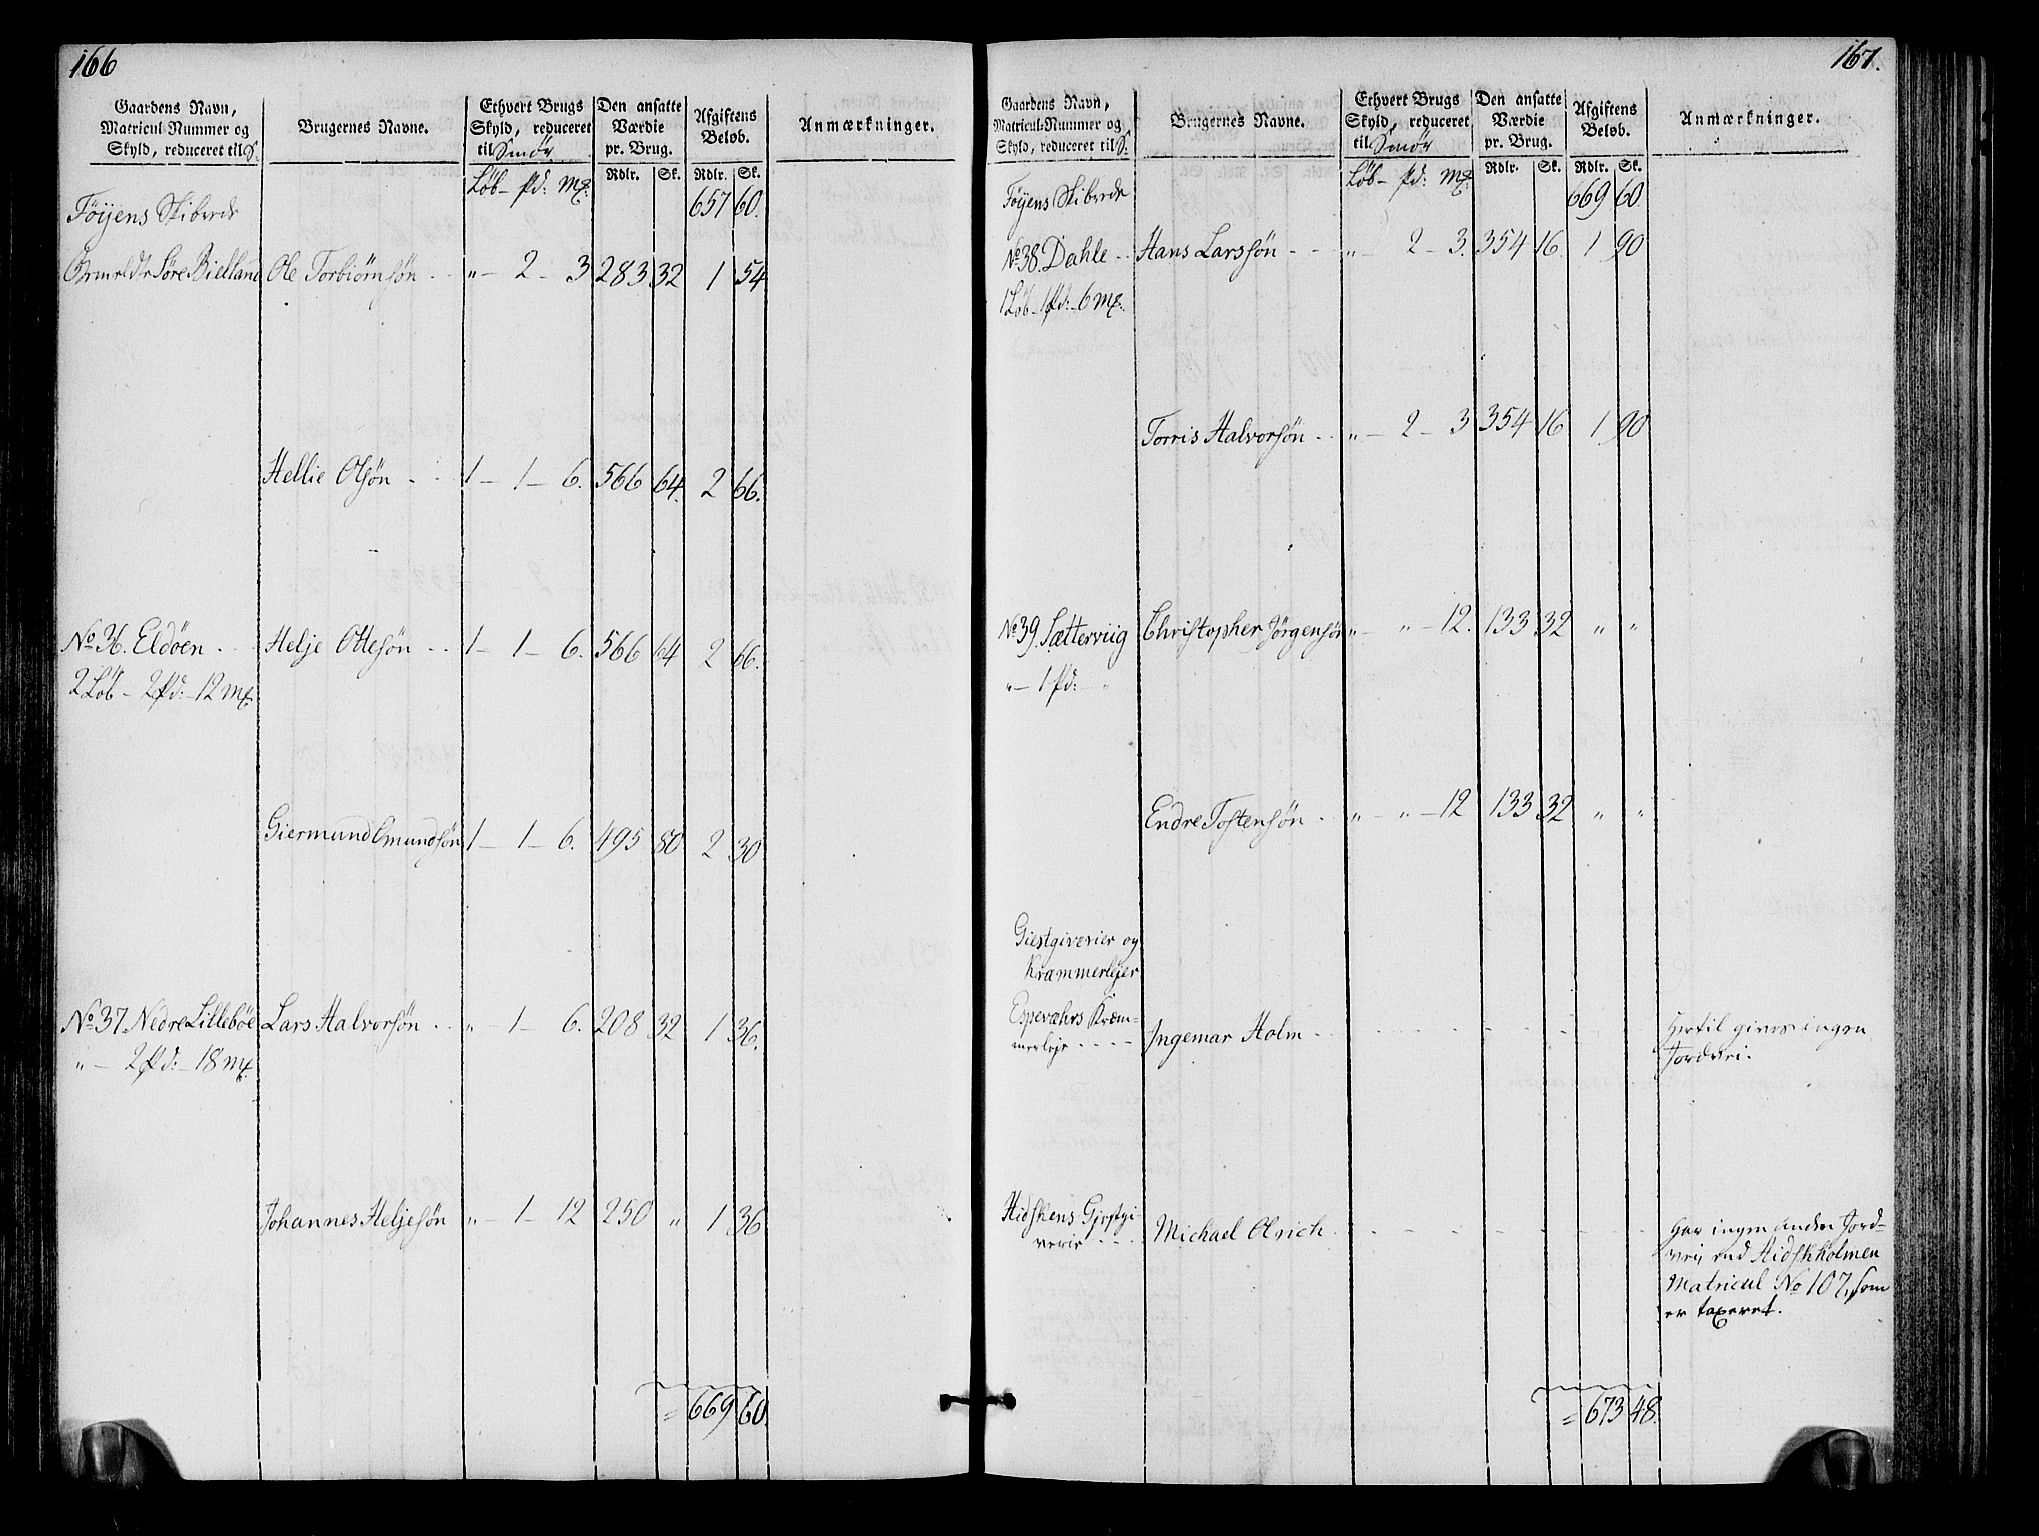 166
Gaardens Navn,
Matricul-Nummer og
Skyld, reduceret til S:
Brugernes Navne.
Ethvert Brugs
Skyld, reduceret
til Smør
Den ansatte
Værdie
pr. Brug.
Afgiftens
Beløb.
Anmærkninger.
Løb - pd: mk:
Rdlr. Sk. Rdlr. Sk.
657 60.
Föyens Skibrede
Søre Bielland Ole Torbiørnsøn - - „ - 2 - 3 283 32 1 54
Hellie Olsøn - - 1 - 1 - 6. 566 64. 2 66.
No 36. Eldøen - - Helje Ottesøn - - 1 - 1 - 6. 566 64 2 66.
2 Løb - 2 pd: - 12 mk:
Giermund Omundsøn 1 - 1 - 6. 495 80 2 30
No 37 Nedre Lillebøe Lars Halvorsøn - - „ - 1 - 6. 208 32 1 36.
„ - 2 pd: - 18 mk:
Johannes Heljesøn „ - 1 - 12 250 „ 1 36
= 669 60
167.
Gaardens Navn,
Matricul-Nummer og
Skyld, reduceret til S:
Brugernes Navne.
Ethvert Brugs
Skyld, reduceret
til Smør
Den ansatte
Værdie
pr. Brug.
Afgiftens
Beløb.
Anmærkninger.
Løb - pd: mk:
Rdlr. Sk. Rdlr. Sk.
669 60
Föyens Skibrede
No 38. Dahle - - Hans Larssøn - - „ - 2 - 3. 354 16. 1 90
1 Løb - 1 pd: - 6 mk:
Torris Halvorsøn - - „ - 2 - 3 354 16 1 90
No 39. Sætterviig Christopher Jørgensøn „ - „ - 12. 133 32 „ „
„ - 1 pd: - „
Endre Tostensøn - - „ - „ - 12 133 32 „ „
Giestgiverier og
Kræmmerlejer
Espevæhrs Kræm-
merleje - - - - Ingemar Holm - - - - - - - - Hertil gives ingen
Jordvei.
Hidskens Giestgi-
verie - - - Michael Olrich - - - - - - - - Har ingen anden Jord-
vei end Hidskholmen
Matricul No 107, som
er taxeret.
= 673 48.